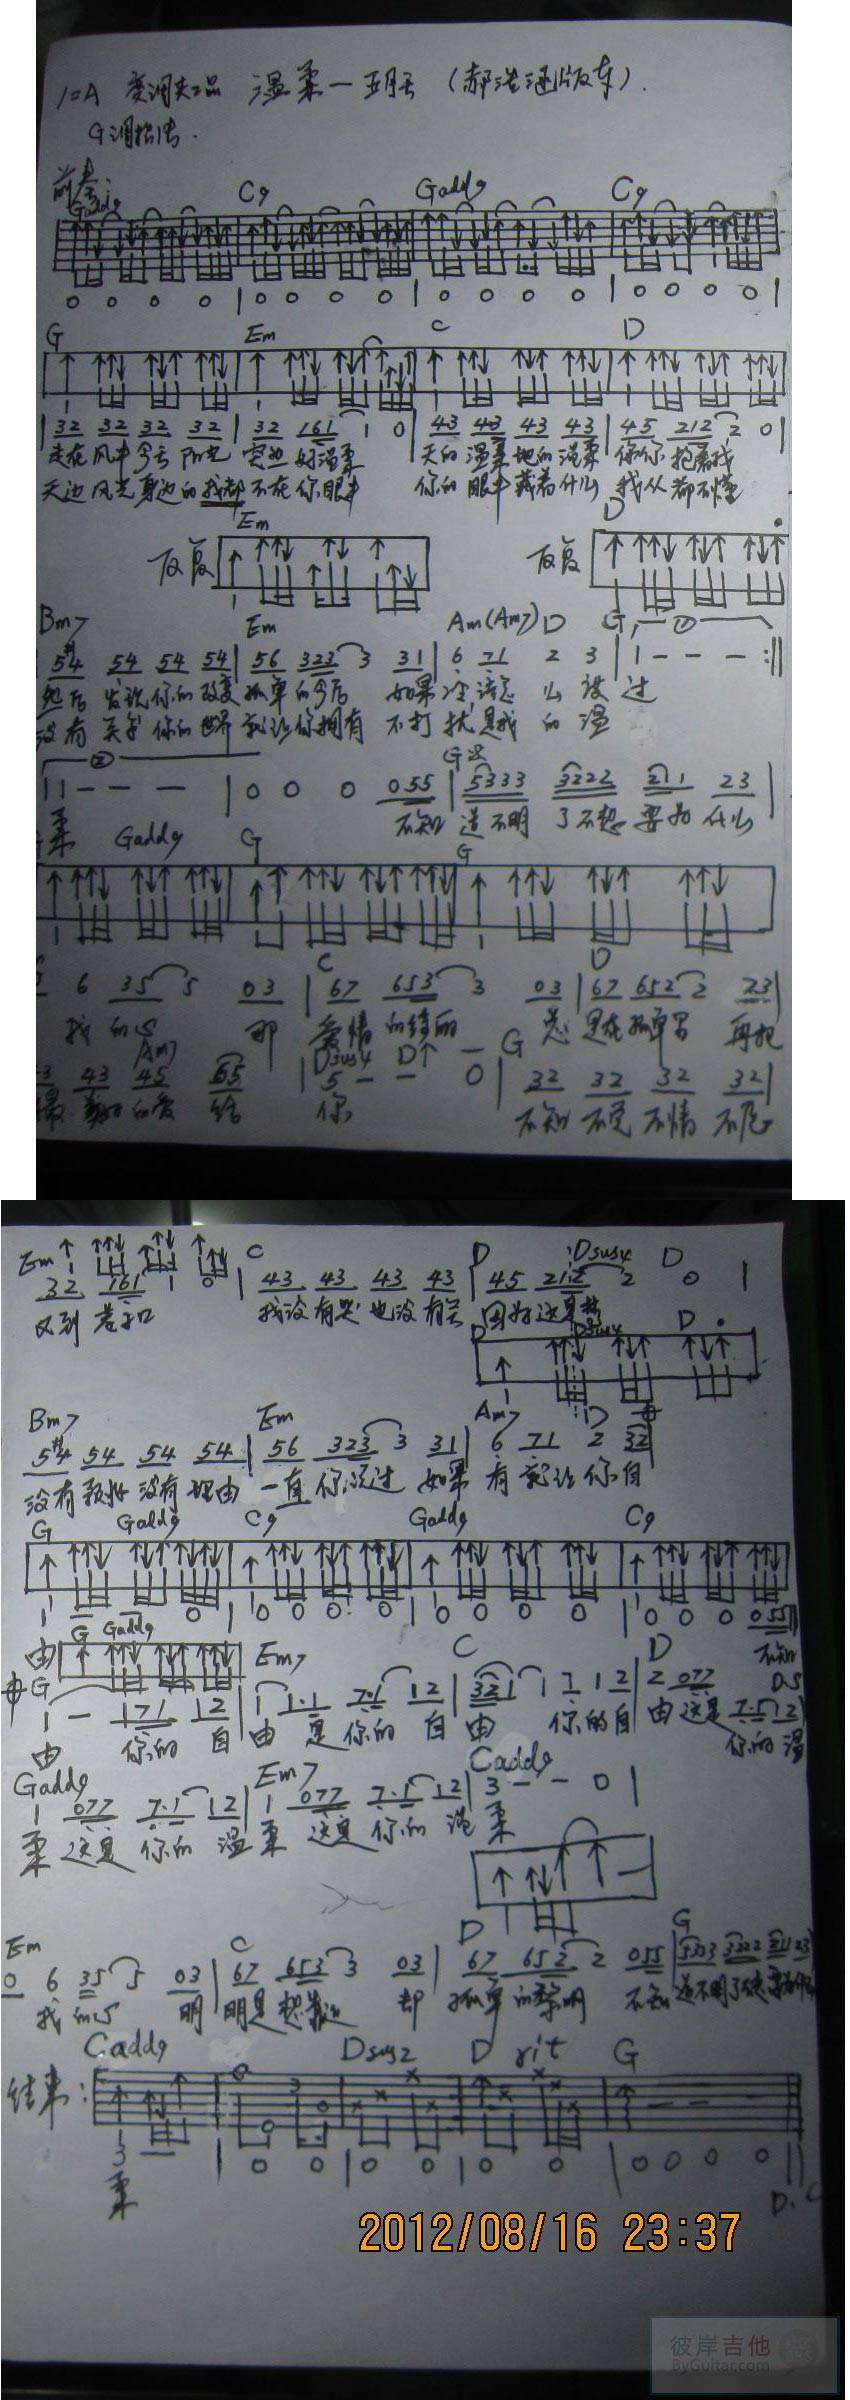 1=A 变调夹2品 温柔—五月天 (郝浩涵版本).
G调指法.
前奏:
Gadd9 C9 Gadd9 C9
0 0 0 0 | 0 0 0 0 | 0 0 0 0 | 0 0 0 0 |
G Em C D
| 32 32 32 32 | 32 161 1 0 | 43 43 43 43 | 45 212 2 0 |
走在风中今天阳光 突然好温柔 天的温柔地的温柔 像你抱着我
天边风光身边的我都不在你眼中 你的眼中藏着什么 我从都不懂
Em D
反复 反复
Bm7 Em Am(Am7) D G ①
| 5#4 54 54 54 | 56 323 3 31 | 6 71 2 3 | 1 - - - :||
然后发现你的改变孤单的今后 如果冷该怎么 度过
没有关系你的世界就让你拥有 不打扰是我的温
② G
| 1 - - - | 0 0 0 055 | 5333 3222 211 23 |
柔 不知道不明了不想要为什么
Gadd9 G G
6 35 5 03 | 67 653 3 03 | 67 652 2 23 |
C D
我的心 那爱情的绮丽 总是在孤单里 再把
Am7 Dsus4 D↑ — G
43 45 65 | 5 - - 0 | 32 32 32 32 |
最美好的爱给你 不知不觉不情不愿
Em C D Dsus4 D
32 161 1 0 | 43 43 43 43 | 45 212 2 0 |
又到巷子口 我没有哭也没有笑因为这是梦
D Dsus4 D
Bm7 Em Am7 D
5#4 54 54 54 | 56 323 3 31 | 6 71 2 32 |
没有预兆没有理由 一直你说过 如果有就让你自
G Gadd9 C9 Gadd9 C9
1 - - 0 | 0 0 0 0 | 0 0 0 0 | 0 0 0 055 ||
由 不知
G Gadd9
Em7 C D D.S
G
1 - 171 12 | 1 1·1 7·1 12 | 321 1 7 12 | 2 077 7·5 12 |
由 你的自由是你的自由 你的自由这是你的温
Gadd9 Em7 Cadd9
1 077 7·1 12 | 1 077 7·1 12 | 3 - - 0 |
柔这是你的温柔这是你的温柔
Em C D G
0 6 35 5 03 | 67 653 3 03 | 67 652 2 055 | 5333 3222 211 23
我的心 明明是想靠近 却孤单的黎明 不知道不明了不想要为什么
Cadd9 Dsus2 D rit G
结束:
3 — | 0 0 | 0 0 | 0 0 0 0 ||
柔
D.C
2012/08/16 23:37
彼岸吉他
ByGuitar.com